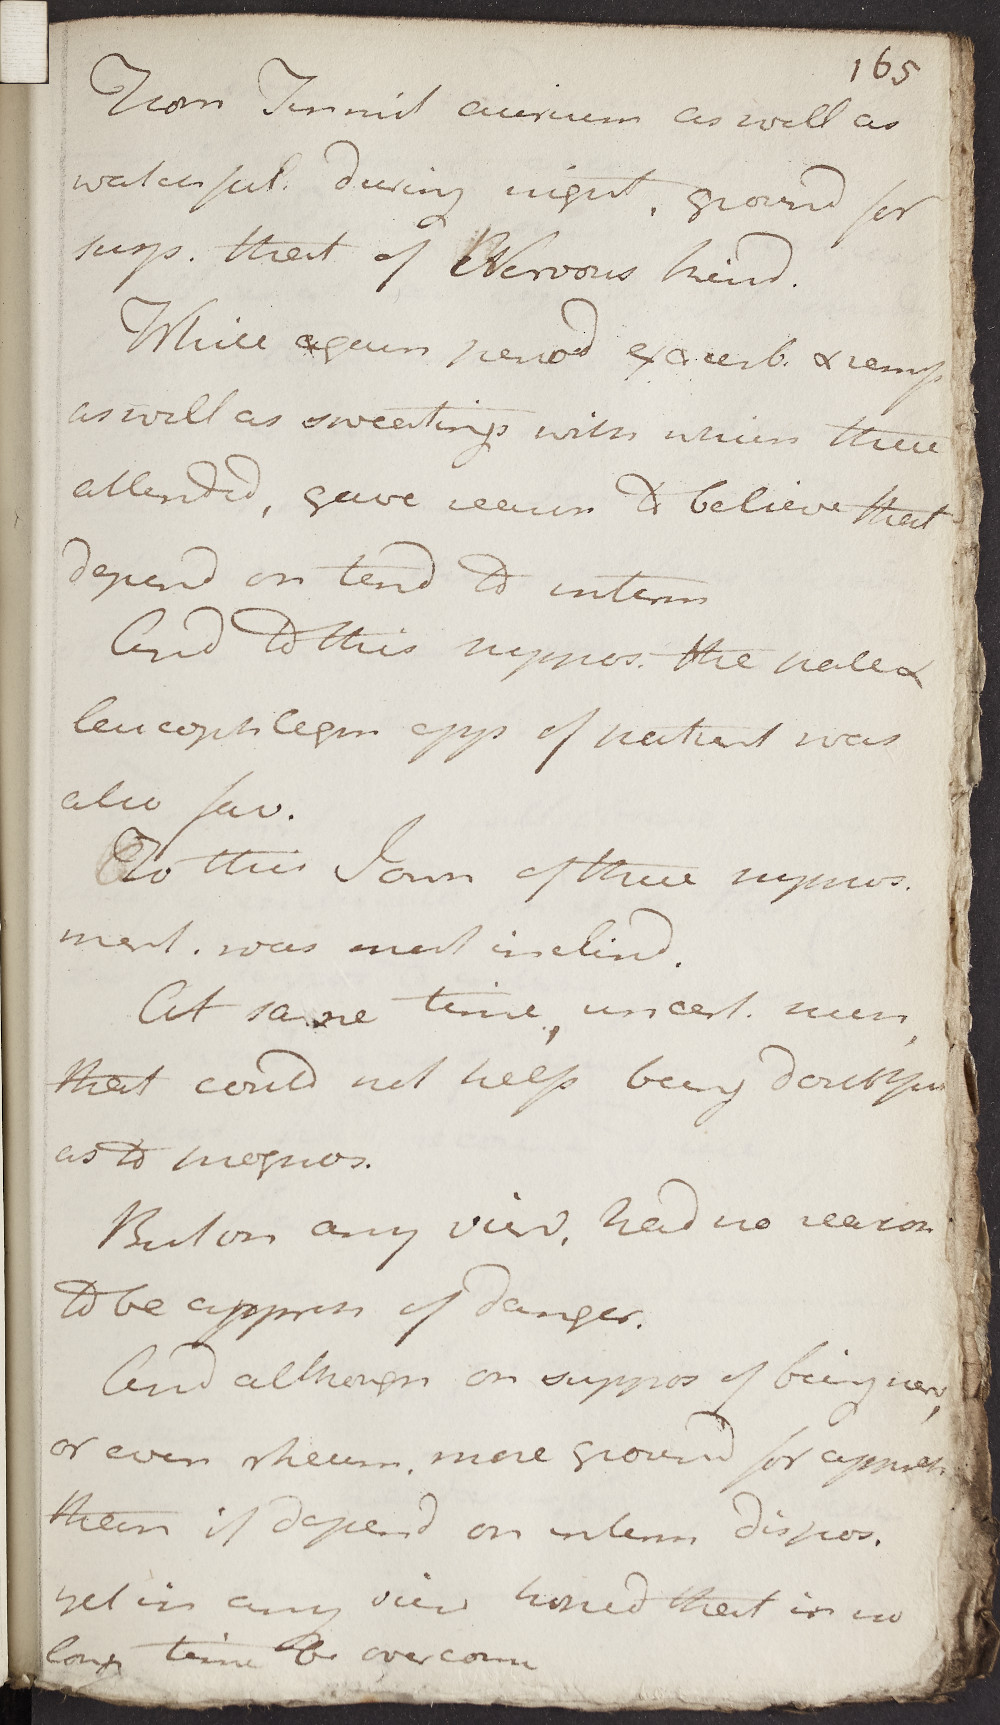 165
From Tinnit aurium as well as
wakeful. during night, ground for
susp. that of Nervous kind.
While again period exacerb. & remis
as well as sweatings with which these
attended, gave reason to believe that
depend on tend to interm
And to this suppos. the pale &
leucophlegm app of patient was
also fav.
To this I own of these suppos.
most. was most inclind.
At same time, uncert. such,
that could not help being doubtful
as to prognos.
But on any view, had no reason
to be appreh of danger.
And although on suppos of being nerv,
or even rheum. more ground for appreh
then if depend on interm dispos.
yet in any view hoped that in no
long time be overcome